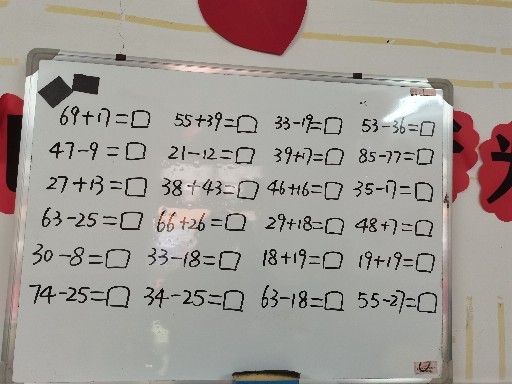 69+17=□ 55+39=□ 33-19=□ 53-36=□
47-9=□ 21-12=□ 39+17=□ 85-77=□
27+13=□ 38+43=□ 46+16=□ 35-17=□
63-25=□ 66+26=□ 29+18=□ 48+7=□
30-8=□ 33-18=□ 18+19=□ 19+19=□
74-25=□ 34-25=□ 63-18=□ 55-27=□